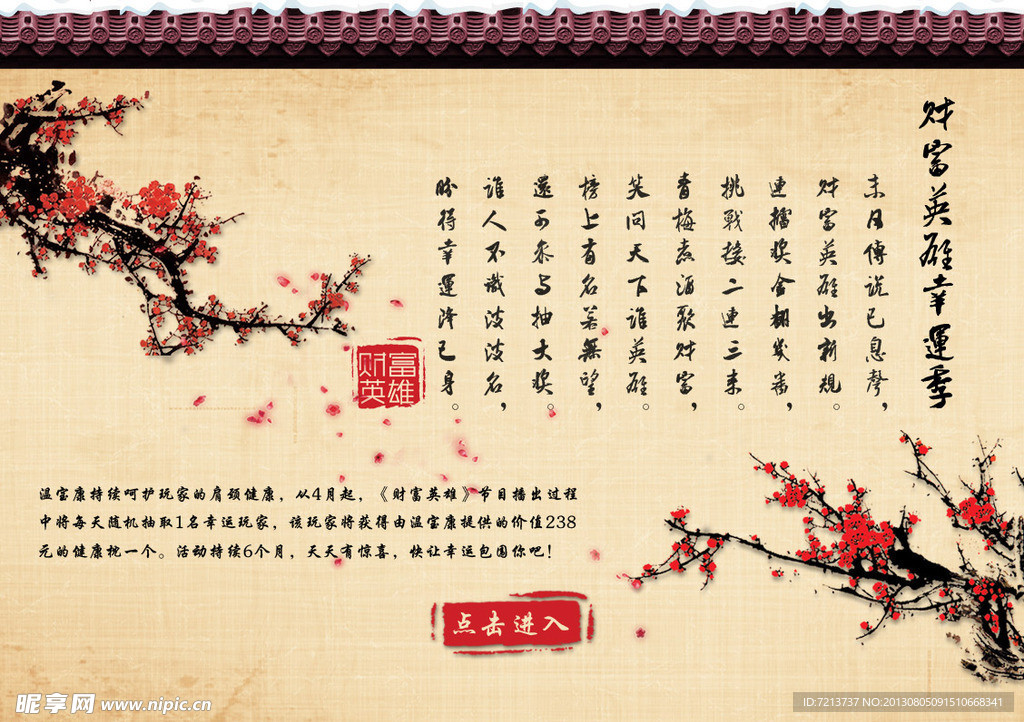 财富英雄幸運季
末日傳說已息聲，
财富英雄出新規。
連擂奖金翻幾番，
挑戰接二連三来。
青梅煮酒聚财富，
笑问天下誰英雄。
榜上有名若無望，
還可参与抽大奖。
誰人不識波波名，
盼得幸運降已身。
财富
英雄
温宝康持续呵护玩家的肩颈健康，从4月起，《财富英雄》节目播出过程
中将每天随机抽取1名幸运玩家，该玩家将获得由温宝康提供的价值238
元的健康枕一个。活动持续6个月，天天有惊喜，快让幸运包围你吧！
点击进入
昵享网 www.nipic.cn
ID:7213737 NO:20130805091510668341